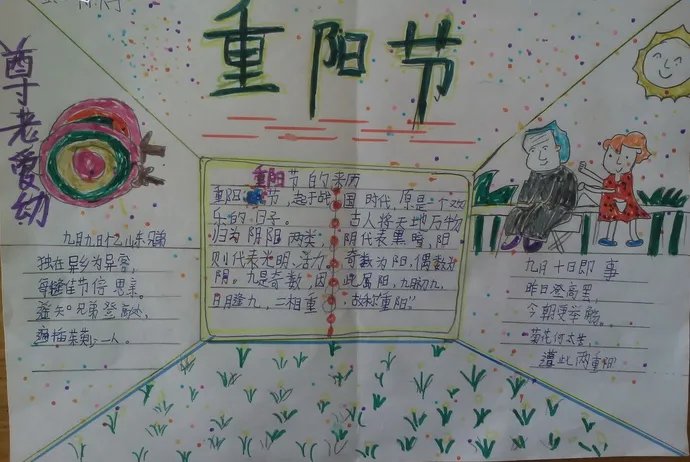 重阳节
尊老爱幼
重阳节的来历
重阳节,起于战国时代,原是一个欢
乐的日子。古人将天地万物
归为阴阳两类,阴代表黑暗,阳
则代表光明、活力。奇数为阳,偶数为
阴。九是奇数,因此属阳,九月初九,
日月逢九,二相重,故称"重阳"。
九月九日忆山东兄弟
独在异乡为异客,
每逢佳节倍思亲。
兄弟登高处,
遍插茱萸少一人。
九月十日即事
昨日登高罢,
今朝更举觞。
菊花何太苦,
遭此两重阳